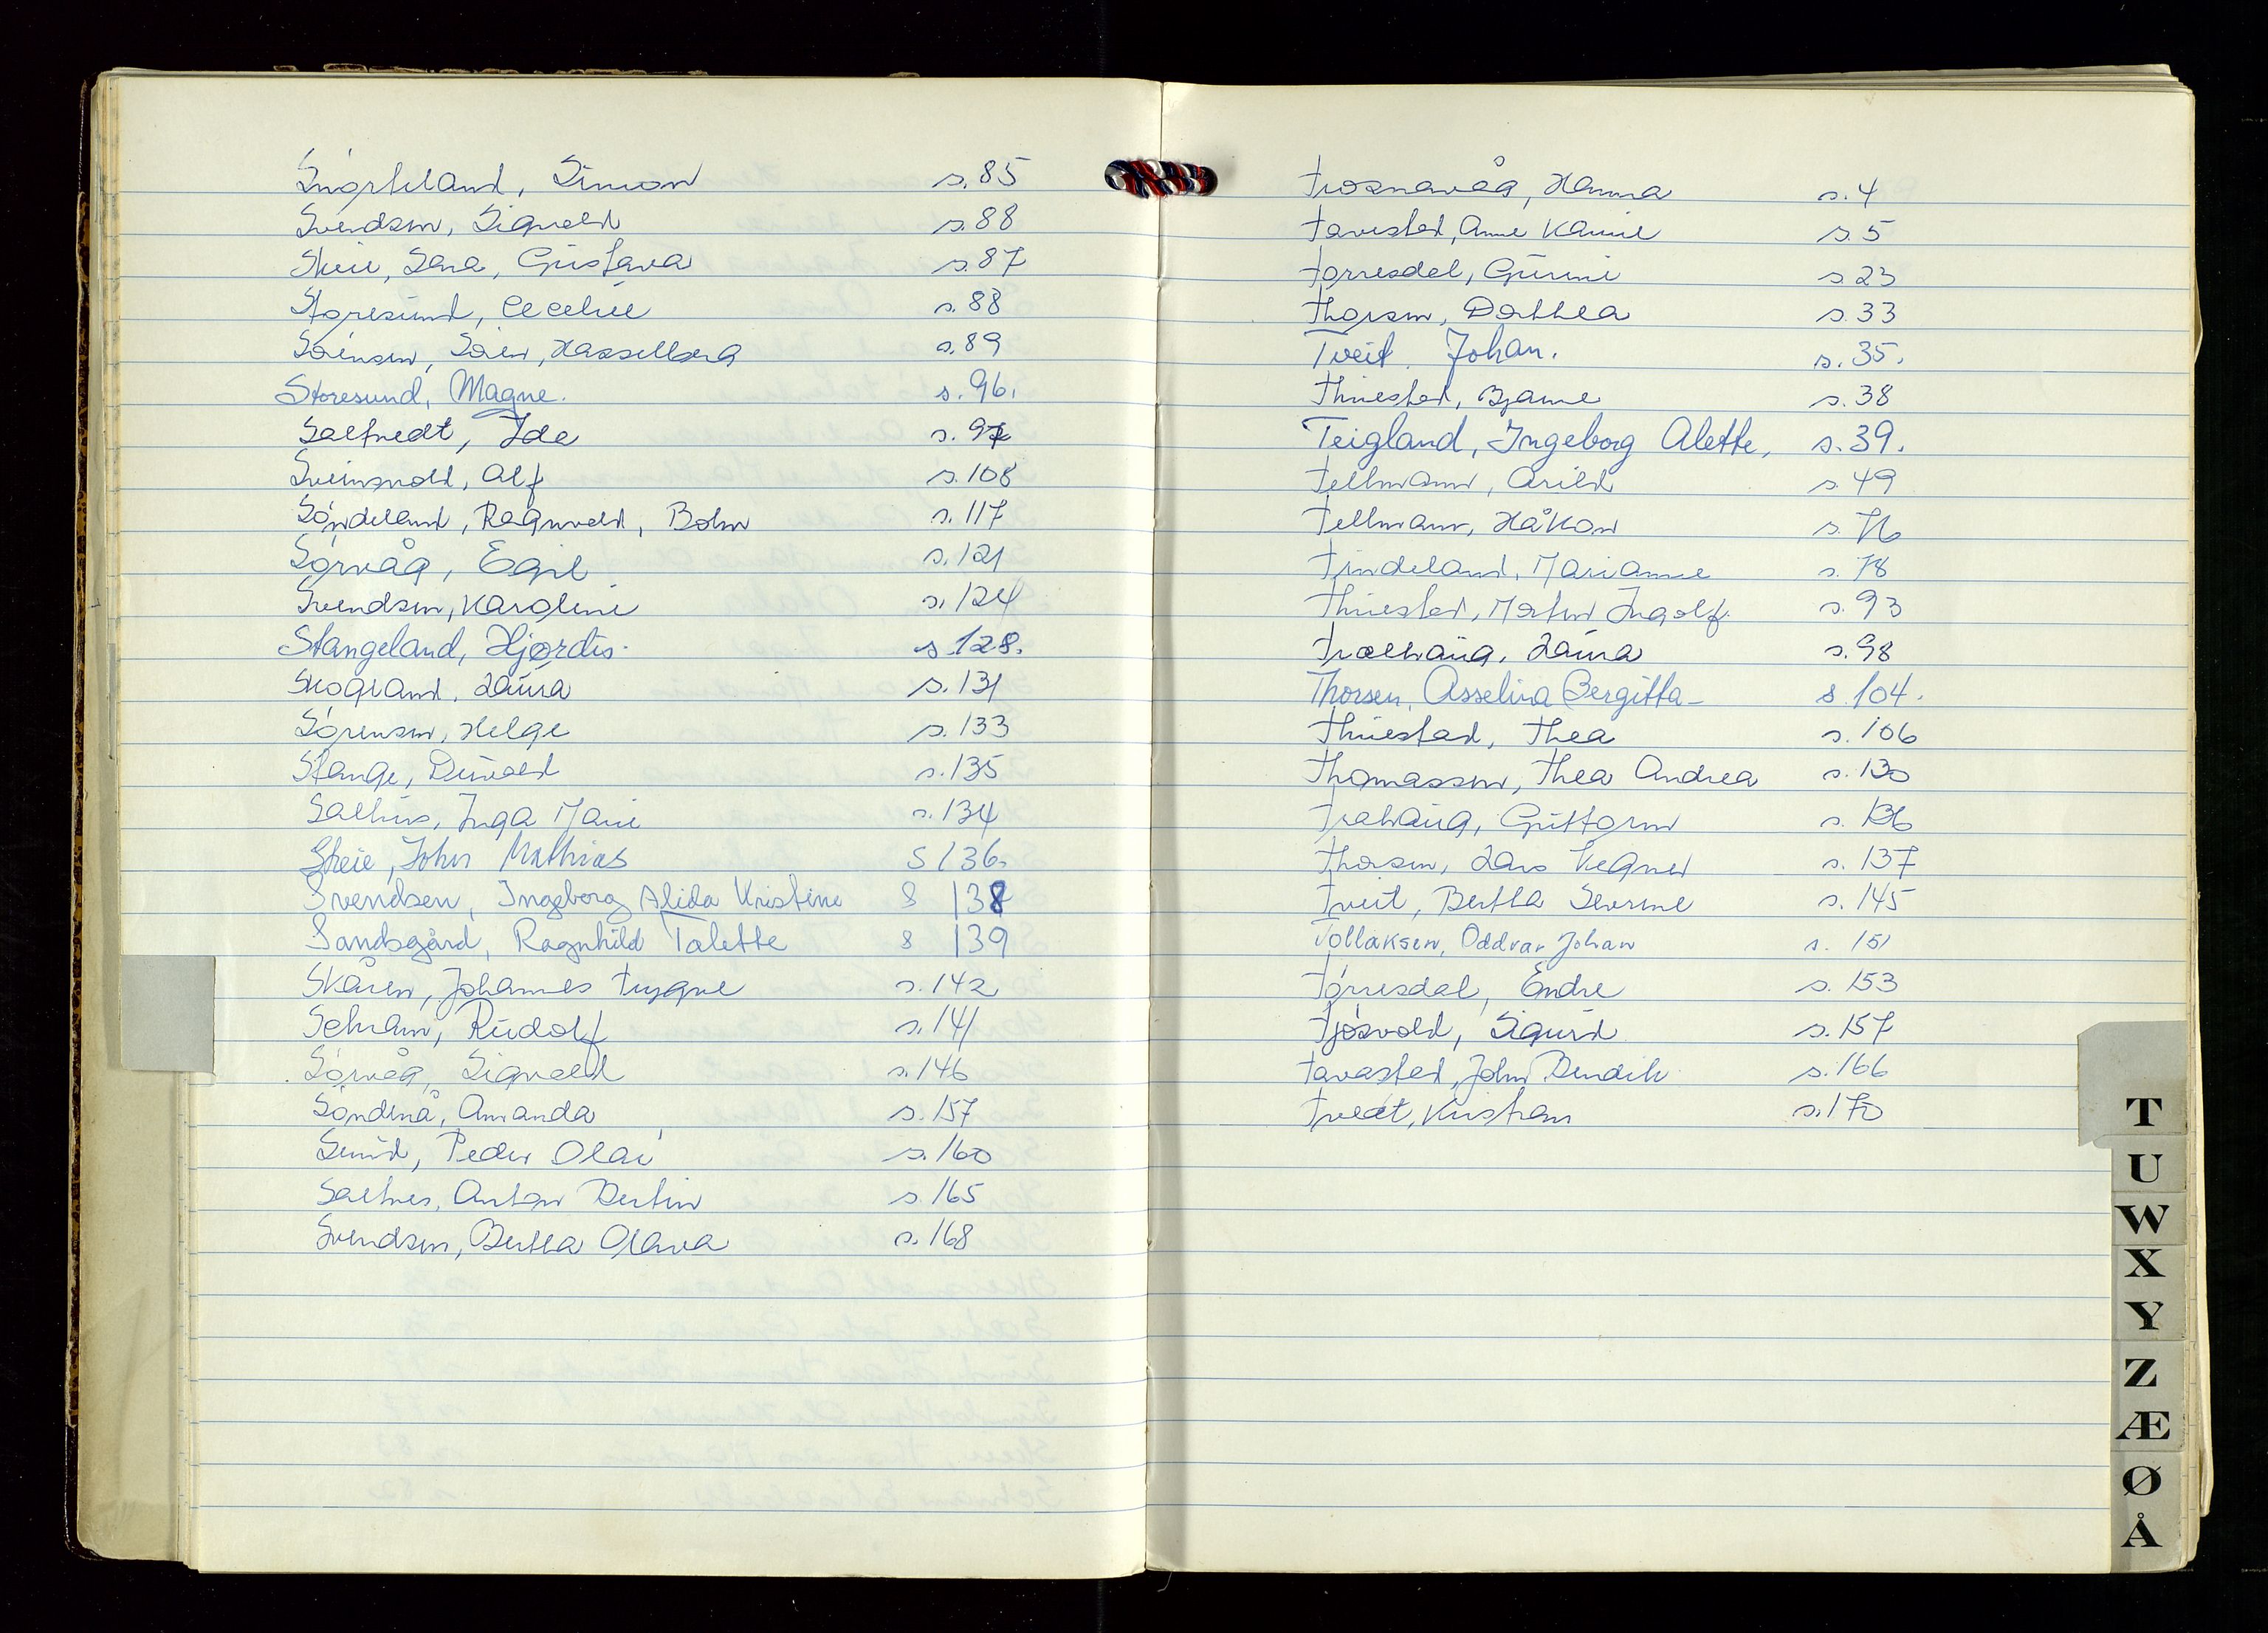 Snørteland, Simon s. 85
Svendsen, Sigvald s. 88
Skeie, Sara, Gustava s. 87
Støresund, Cecelie s. 88
Sørensen, Søren, Hasselberg s. 89
Storesund, Magne. s. 96.
Saltvedt, Ida s. 97
Sveinsvold, Alf s. 108
Søndeland, Ragnvald, Bohn s. 117
Sørvåg, Egil s. 121
Svendsen, Karoline s. 124
Stangeland, Hjørdis. s 128.
Skogland, Laura s. 131
Sørensen, Helge s. 133
Stange, Devold s. 135
Salhus, Inga Marie s. 134
Skeie, John Mathias S 136.
Svendsen, Ingeborg Alida Kristine S 138
Sandsgård, Ragnhild Talette S 139
Skåren, Johannes Trygve s. 142
Schram, Rudolf s. 141
Sørvåg, Sigvald s. 146
Søndenå, Amanda s. 157
Sund, Peder Olai s. 160
Saltnes, Anton Bertin s. 165
Svendsen, Bertha Olava s. 168
Trosnavåg, Hanna s. 4
Tavasted, Anne Karine s. 5
Tørresdal, Gurine s. 23
Thorsen, Dorthea s. 33
Tveit. Johan. s. 35.
Thuestad, Bjarne s. 38
Teigland, Ingeborg Alette, s. 39.
Tellmann, Arild s. 49
Tellmann, Håkon s. 76
Tindeland, Marianne s. 78
Thuestad, Morten Ingolf. s. 93
Trælhaug, Laura s. 98
Thorsen, Asselina Bergitta s 104.
Thuestad, Thea s. 106
Thomassen, Thea Andrea s. 130
Trælhaug, Guttorm s. 136
Thorsen, Lars Vegner s. 137
Tveit, Bertha Severine s. 145
Tollaksen, Oddvar Johan s. 151
Tørresdal, Endre s. 153
Tjøsvold, Sigurd s. 157
Tavasted, John Bendik s. 166
Tvedt, Kristian s. 170
T
U
W
X
Y
Z
Æ
Ø
Å